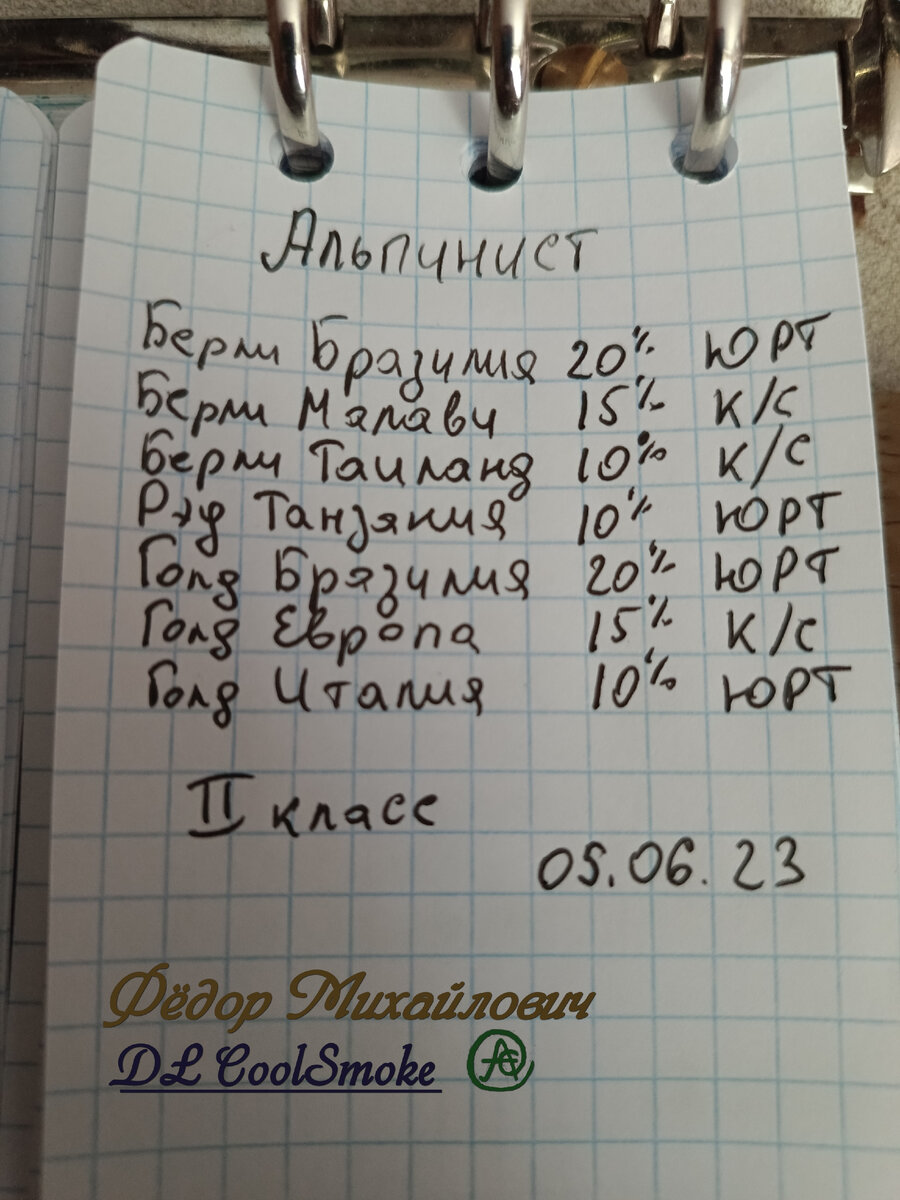 Альпинист
Берли Бразилия 20% ЮРТ
Берли Малави 15% К/С
Берли Таиланд 10% К/С
Рэд Танзания 10% ЮРТ
Голд Бразилия 20% ЮРТ
Голд Европа 15% К/С
Голд Италия 10% ЮРТ
II класс
05.06.23
Фёдор Михайлович
DL CoolSmoke